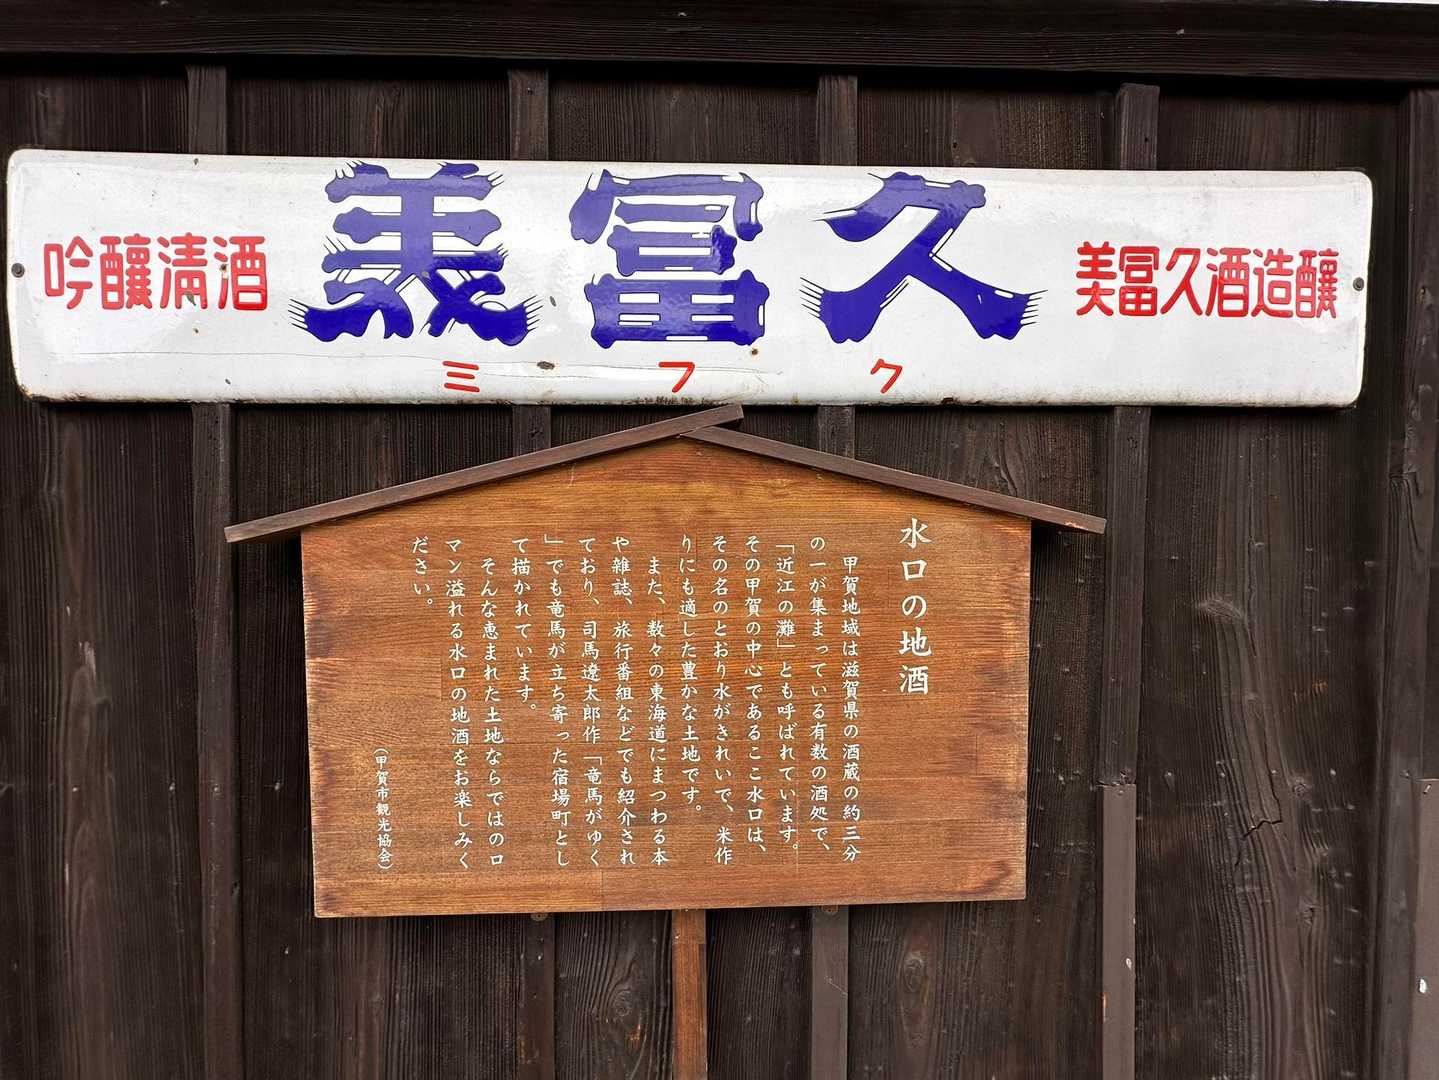 吟醸清酒
美冨久
ミフク
美冨久酒造醸
水口の地酒
甲賀地域は滋賀県の酒蔵の約三分
の一が集まっている有数の酒処で、
「近江の灘」とも呼ばれています。
その甲賀の中心であるここ水口は、
その名のとおり水がきれいで、米作
りにも適した豊かな土地です。
また、数々の東海道にまつわる本
や雑誌、旅行番組などでも紹介され
ており、司馬遼太郎作「竜馬がゆく
」でも竜馬が立ち寄った宿場町とし
て描かれています。
そんな恵まれた土地ならではのロ
マン溢れる水口の地酒をお楽しみく
ださい。
（甲賀市観光協会）